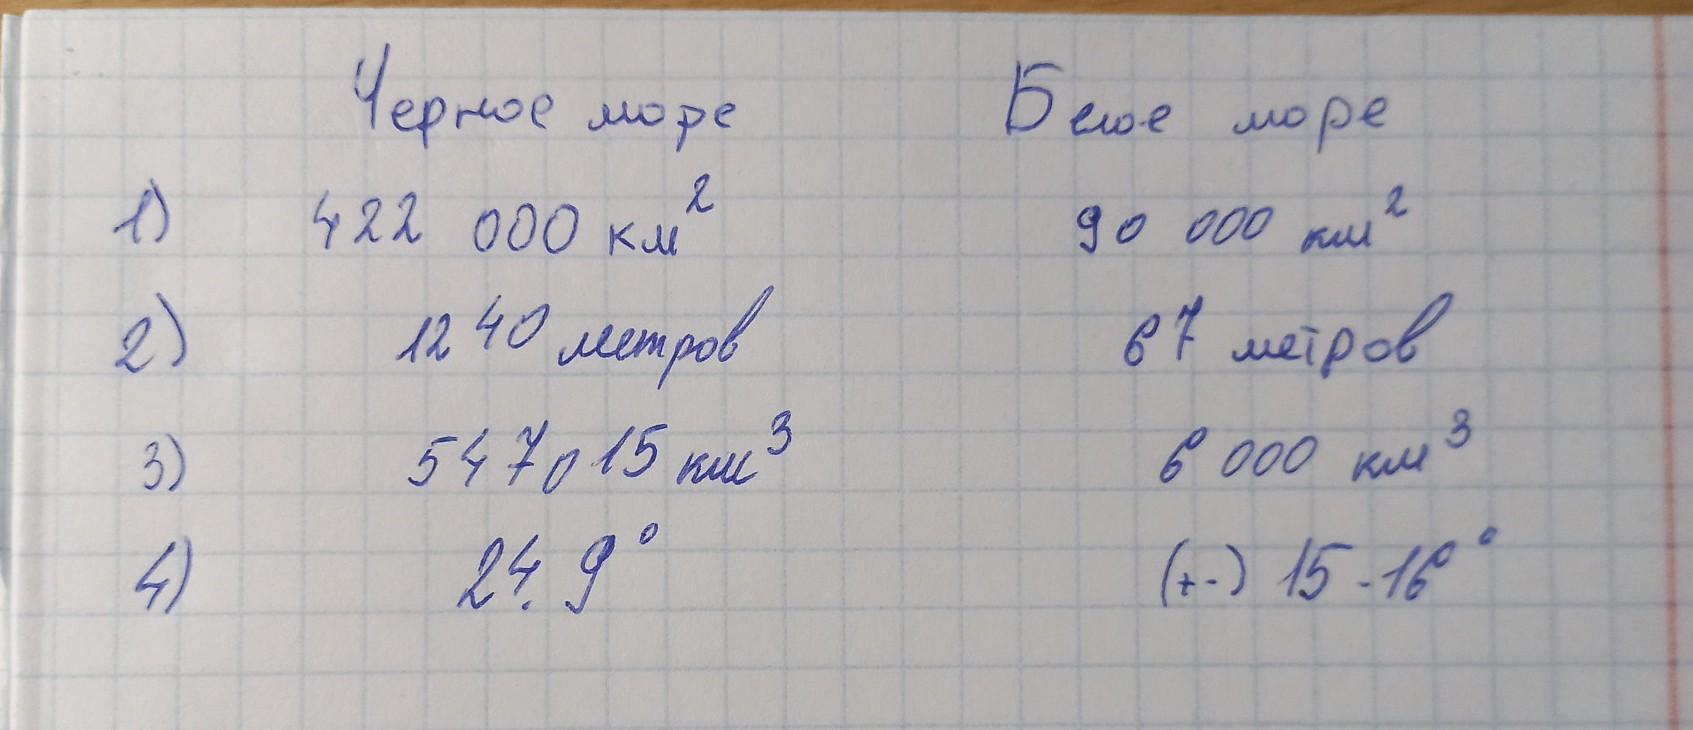 Черное море Белое море
1) 422 000 км² 90 000 км²
2) 1240 метров 67 метров
3) 547015 км³ 6 000 км³
4) 24.9° (+-) 15-16°